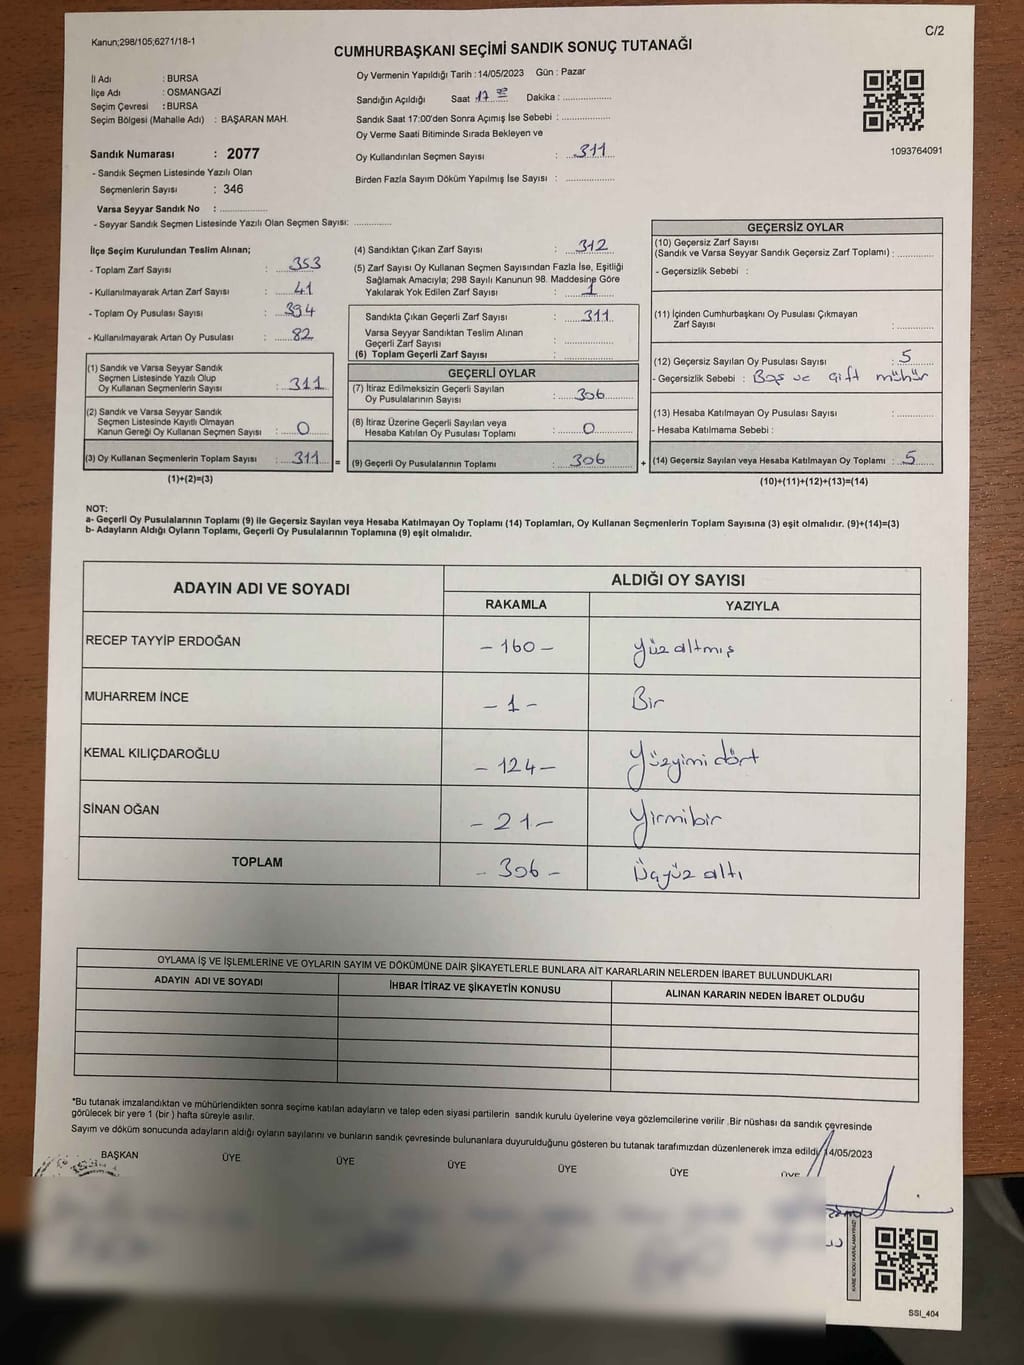 Kanun;298/105;6271/18-1
C/2
CUMHURBAŞKANI SEÇİMİ SANDIK SONUÇ TUTANAĞI
İl Adı : BURSA
İlçe Adı : OSMANGAZİ
Seçim Çevresi : BURSA
Seçim Bölgesi (Mahalle Adı) : BAŞARAN MAH.
Sandık Numarası : 2077
- Sandık Seçmen Listesinde Yazılı Olan
Seçmenlerin Sayısı : 346
Varsa Seyyar Sandık No : ................
- Seyyar Sandık Listesinde Yazılı Olan Seçmen Sayısı: ............
Oy Vermenin Yapıldığı Tarih : 14/05/2023 Gün : Pazar
Sandığın Açıldığı Saat 17 00 Dakika : ................
Sandık Saat 17:00'den Sonra Açımış İse Sebebi : ................
Oy Verme Saati Bitiminde Sırada Bekleyen ve
Oy Kullandırılan Seçmen Sayısı : 311
Birden Fazla Sayım Döküm Yapılmış İse Sayısı : ................
1093764091
İlçe Seçim Kurulundan Teslim Alınan;
- Toplam Zarf Sayısı : 353
- Kullanılmayarak Artan Zarf Sayısı : 41
- Toplam Oy Pusulası Sayısı : 394
- Kullanılmayarak Artan Oy Pusulası : 82
(1) Sandık ve Varsa Seyyar Sandık
Seçmen Listesinde Yazılı Olup
Oy Kullanan Seçmenlerin Sayısı : 311
(2) Sandık ve Varsa Seyyar Sandık
Seçmen Listesinde Kayıtlı Olmayan
Kanun Gereği Oy Kullanan Seçmen Sayısı : 0
(3) Oy Kullanan Seçmenlerin Toplam Sayısı : 311 =
(1)+(2)=(3)
(4) Sandıktan Çıkan Zarf Sayısı : 312
(5) Zarf Sayısı Oy Kullanan Seçmen Sayısından Fazla İse, Eşitliği
Sağlamak Amacıyla; 298 Sayılı Kanunun 98. Maddesine Göre
Yakılarak Yok Edilen Zarf Sayısı : 1
Sandıkta Çıkan Geçerli Zarf Sayısı : 311
Varsa Seyyar Sandıktan Teslim Alınan
Geçerli Zarf Sayısı : ............
(6) Toplam Geçerli Zarf Sayısı : ............
GEÇERLİ OYLAR
(7) İtiraz Edilmeksizin Geçerli Sayılan
Oy Pusulalarının Sayısı : 306
(8) İtiraz Üzerine Geçerli Sayılan veya
Hesaba Katılan Oy Pusulası Toplamı : 0
(9) Geçerli Oy Pusulalarının Toplamı : 306 +
GEÇERSİZ OYLAR
(10) Geçersiz Zarf Sayısı
(Sandık ve Varsa Seyyar Sandık Geçersiz Zarf Toplamı) : .........
- Geçersizlik Sebebi :
(11) İçinden Cumhurbaşkanı Oy Pusulası Çıkmayan
Zarf Sayısı : .........
(12) Geçersiz Sayılan Oy Pusulası Sayısı : 5
- Geçersizlik Sebebi : Boş ve çift mühür
(13) Hesaba Katılmayan Oy Pusulası Sayısı : .........
- Hesaba Katılmama Sebebi :
(14) Geçersiz Sayılan veya Hesaba Katılmayan Oy Toplamı : 5
(10)+(11)+(12)+(13)=(14)
NOT:
a- Geçerli Oy Pusulalarının Toplamı (9) ile Geçersiz Sayılan veya Hesaba Katılmayan Oy Toplamı (14) Toplamları, Oy Kullanan Seçmenlerin Toplam Sayısına (3) eşit olmalıdır. (9)+(14)=(3)
b- Adayların Aldığı Oyların Toplamı, Geçerli Oy Pusulalarının Toplamına (9) eşit olmalıdır.
ADAYIN ADI VE SOYADI ALDIĞI OY SAYISI
RAKAMLA YAZIYLA
RECEP TAYYİP ERDOĞAN - 160 - Yüz altmış
MUHARREM İNCE - 1 - Bir
KEMAL KILIÇDAROĞLU - 124 - Yüzyimi dört
SİNAN OĞAN - 21 - Yirmibir
TOPLAM - 306 - Üçyüz altı
OYLAMA İŞ VE İŞLEMLERİNE VE OYLARIN SAYIM VE DÖKÜMÜNE DAİR ŞİKAYETLERLE BUNLARA AİT KARARLARIN NELERDEN İBARET BULUNDUKLARI
ADAYIN ADI VE SOYADI İHBAR İTİRAZ VE ŞİKAYETİN KONUSU ALINAN KARARIN NEDEN İBARET OLDUĞU
*Bu tutanak imzalandıktan ve mühürlendikten sonra seçime katılan adayların ve talep eden siyasi partilerin sandık kurulu üyelerine veya gözlemcilerine verilir .Bir nüshası da sandık çevresinde
görülecek bir yere 1 (bir ) hafta süreyle asılır.
Sayım ve döküm sonucunda adayların aldığı oyların sayılarını ve bunların sandık çevresinde bulunanlara duyurulduğunu gösteren bu tutanak tarafımızdan düzenlenerek imza edildi 14/05/2023
BAŞKAN ÜYE ÜYE ÜYE ÜYE ÜYE ÜYE
KARE KODU KARALAMAYINIZ!
SSI_404